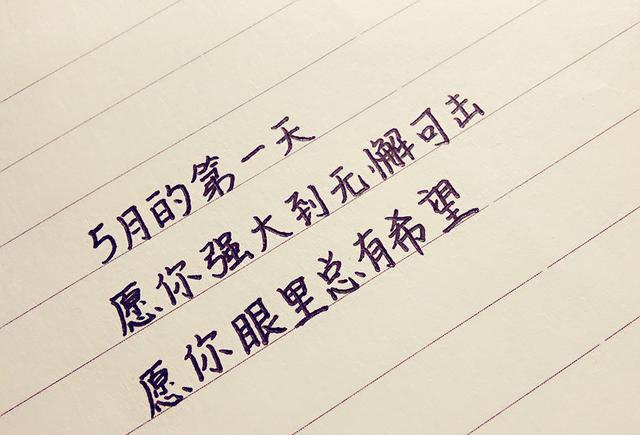 5月的第一天
愿你强大到无懈可击
愿你眼里总有希望